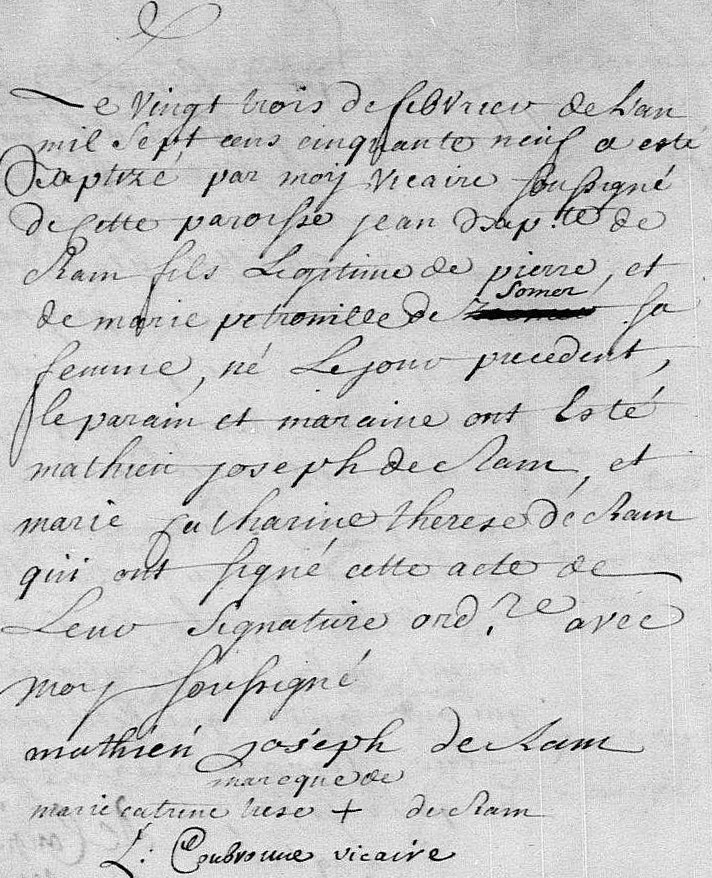 Le vingt trois de febvrier de L'an
mil sept cens cinquante neuf a esté
Baptizé, par moy vicaire soussigné
de cette paroisse jean Bap.te de
Ram fils Legitime de pierre, et
de marie petronille de Somer sa
femme, né Le jour precedent,
le parain et maraine ont Esté
mathieu joseph de Ram, et
marie Catharine therese de Ram
qui ont signé cette acte de
Leur signature ord.re avec
moy soussigné
mathieu joseph de Ram
marcque de
marie catrine trese + de Ram
L: vicaire